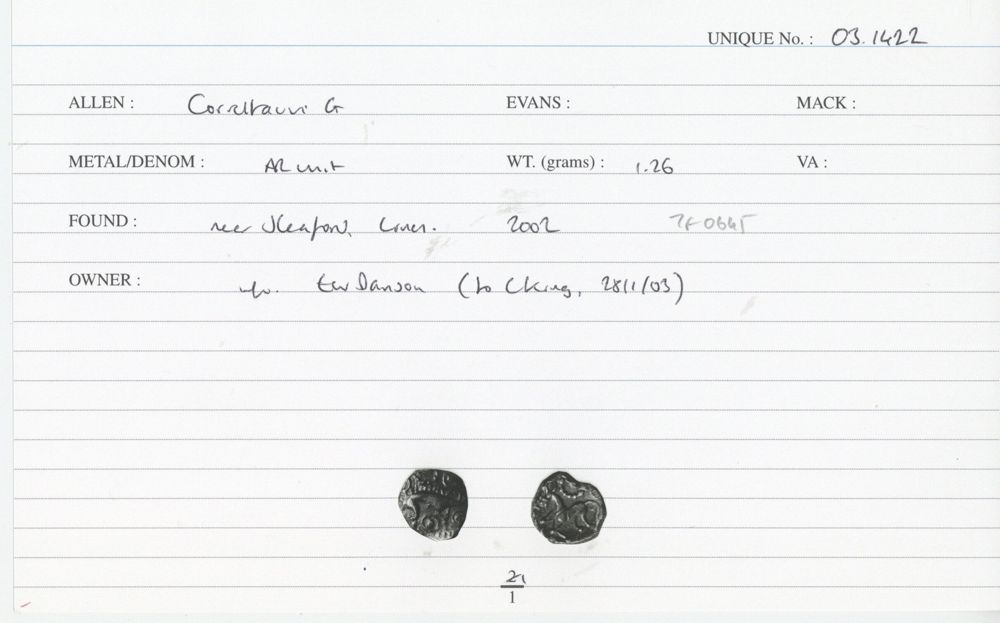 UNIQUE No. : 03.1422
ALLEN : Corieltauvi G EVANS : MACK :
METAL/DENOM : AR unit WT. (grams) : 1.26 VA :
FOUND : near Sleaford, Lincs. 2002
OWNER : Danson (to CKing, 28/1/03)
2/1